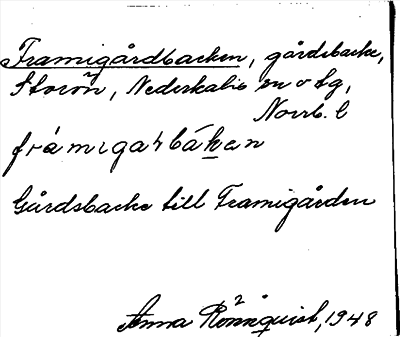 Framigårdbacken, gårdsbacke,
Storön, Nederkalix sn o tg,
Norrb. l
frámigaɥbákan
Gårdsbacke till Framigården
Anna Rönnquist, 1948